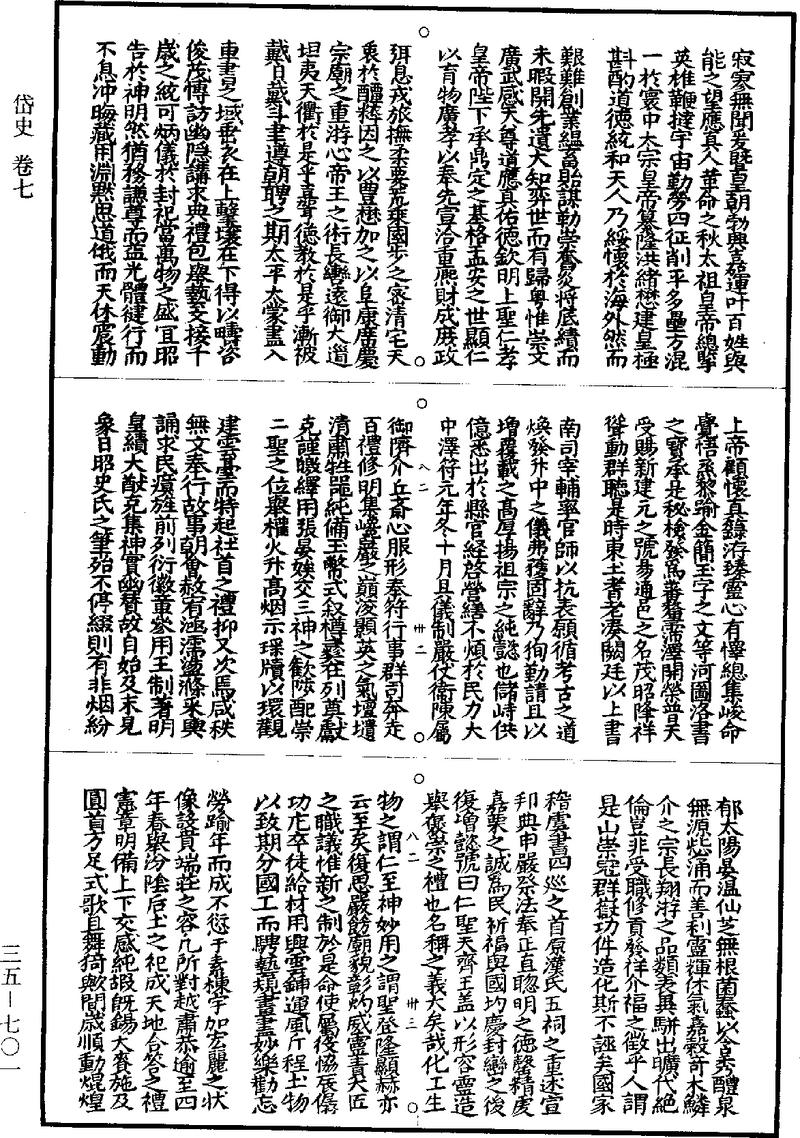 岱史 卷七
寂寥無聞爰暨皇朝勃興嘉運叶百姓與
能之望應真人革命之秋太祖皇帝總擥
英雄鞭撻宇宙勤勞四征削平多壘方混
一於寰中太宗皇帝纂隆洪緒懋建皇極
斟酌道德統和天人乃綏懷於海外然而
艱難創業緼畜貽謀勒崇奮炎將底績而
未暇開先遺大知弈世而有歸粤惟崇文
廣武感天尊道應真佑德欽明上聖仁孝
皇帝陛下承鼎定之基格盂安之世顯仁
以育物廣孝以奉先宣洽重熙財成庶政
弭息戎旅撫柔要荒乘國步之寧清宅天
衷於醲粹因之以豊楙加之以阜康廣慶
宗廟之重游心帝王之術長轡遠御大道
坦夷天衢於是乎喜聲德教於是乎漸被
戴白戴斗聿遵朝聘之期太平太蒙盡入
車書之域垂衣在上擊壤在下得以疇咨
俊茂博訪幽隱講求典禮包舉藝文接千
歲之統可炳儀於封祀當萬物之盛宜昭
告於神明然猶務謙尊而益光體健行而
不息沖晦藏用淵默思道俄而天休震動
上帝顧懷真籙洊臻靈心有懌總集峻命
覺悟烝黎踰金簡玉字之文等河圖洛書
之寶承是秘檢發爲蕃釐霈澤開榮普天
受賜新建元之號易通邑之名茂昭降祥
聳動群聽是時東土耆老湊闕廷以上書
南司宰輔率官師以抗表願循考古之道
煥發升中之儀弗獲固辭乃徇勤請且以
增覆載之高厚揚祖宗之純懿也儲峙供
億悉出於縣官經啓營繕不煩於民力大
中祥符元年冬十月具儀制嚴仗衛陳屬
御隮介丘齋心服形奉符行事群司奔走
百禮修明集巉巖之巔凌顥英之氣壇壝
清肅牲噐純備玉幣式叙樽彝在列尊獻
克謹皦繹用張晏娭交三神之歡陟配崇
二聖之位舉權火升高烟示璪牘以環觀
建雲臺而特起社首之禮抑又次焉咸秩
無文奉行故事朝會赦宥涵濡盪滌采輿
誦求民瘼旌前列衍徽章參用王制著明
皇績大猷克集神貺幽賛故自始及末見
象日昭史氏之筆殆不停綴則有非烟紛
郁太陽晏溫仙芝無根菌蠢以含秀醴泉
無源觱涌而善利靈輝休氣嘉穀奇木鱗
介之宗長翔游之品類表異駢出曠代絶
倫豈非受職修貢發祥介福之徵乎人謂
是山崇冠群嶽功侔造化斯不誣矣國家
稽虞書四巡之首原漢氏五祠之重述宣
邦典申嚴祭法奉正直聰明之德罄精虔
嘉栗之誠爲民祈福與國均慶封巒之後
復增懿號曰仁聖天齊王盖以形容靈造
舉褒崇之禮也名稱之義大矣哉化工生
物之謂仁至神妙用之謂聖登隆顯赫亦
云至矣復思嚴飭廟貌彰灼威靈責大匠
之職議惟新之制於是命使屬役協辰僝
功庀卒徒給材用輿雲鍤運風斤程土物
以致期分國工而騁藝規畫盡妙樂勸忘
勞踰年而成不愆于素棟宇加宏麗之狀
像設貫端莊之容凡所對越肅恭逾至四
年春舉汾陰后土之祀成天地合答之禮
憲章明備上下交感純嘏旣錫大賚施及
圓首方足式歌且舞猗歟間歲順動焜煌
三五—七〇一